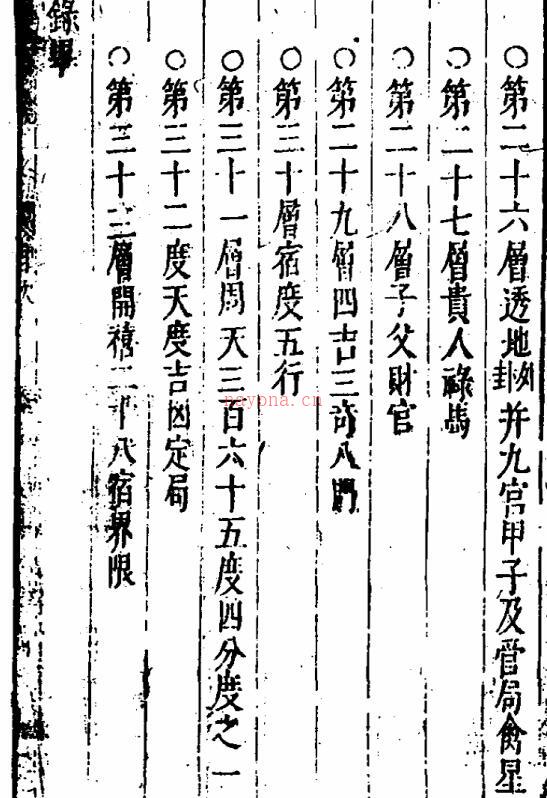 ○第二十六層透地卦例并九宮甲子及管局禽星
○第二十七層貴人祿馬
○第二十八層子父財官
○第二十九層四吉三奇八門
○第三十層宿度五行
○第三十一層周天三百六十五度四分度之一
○第三十二度天度吉凶定局
○第三十三層開禧二十八宿界限
錄畢
nayona.cn